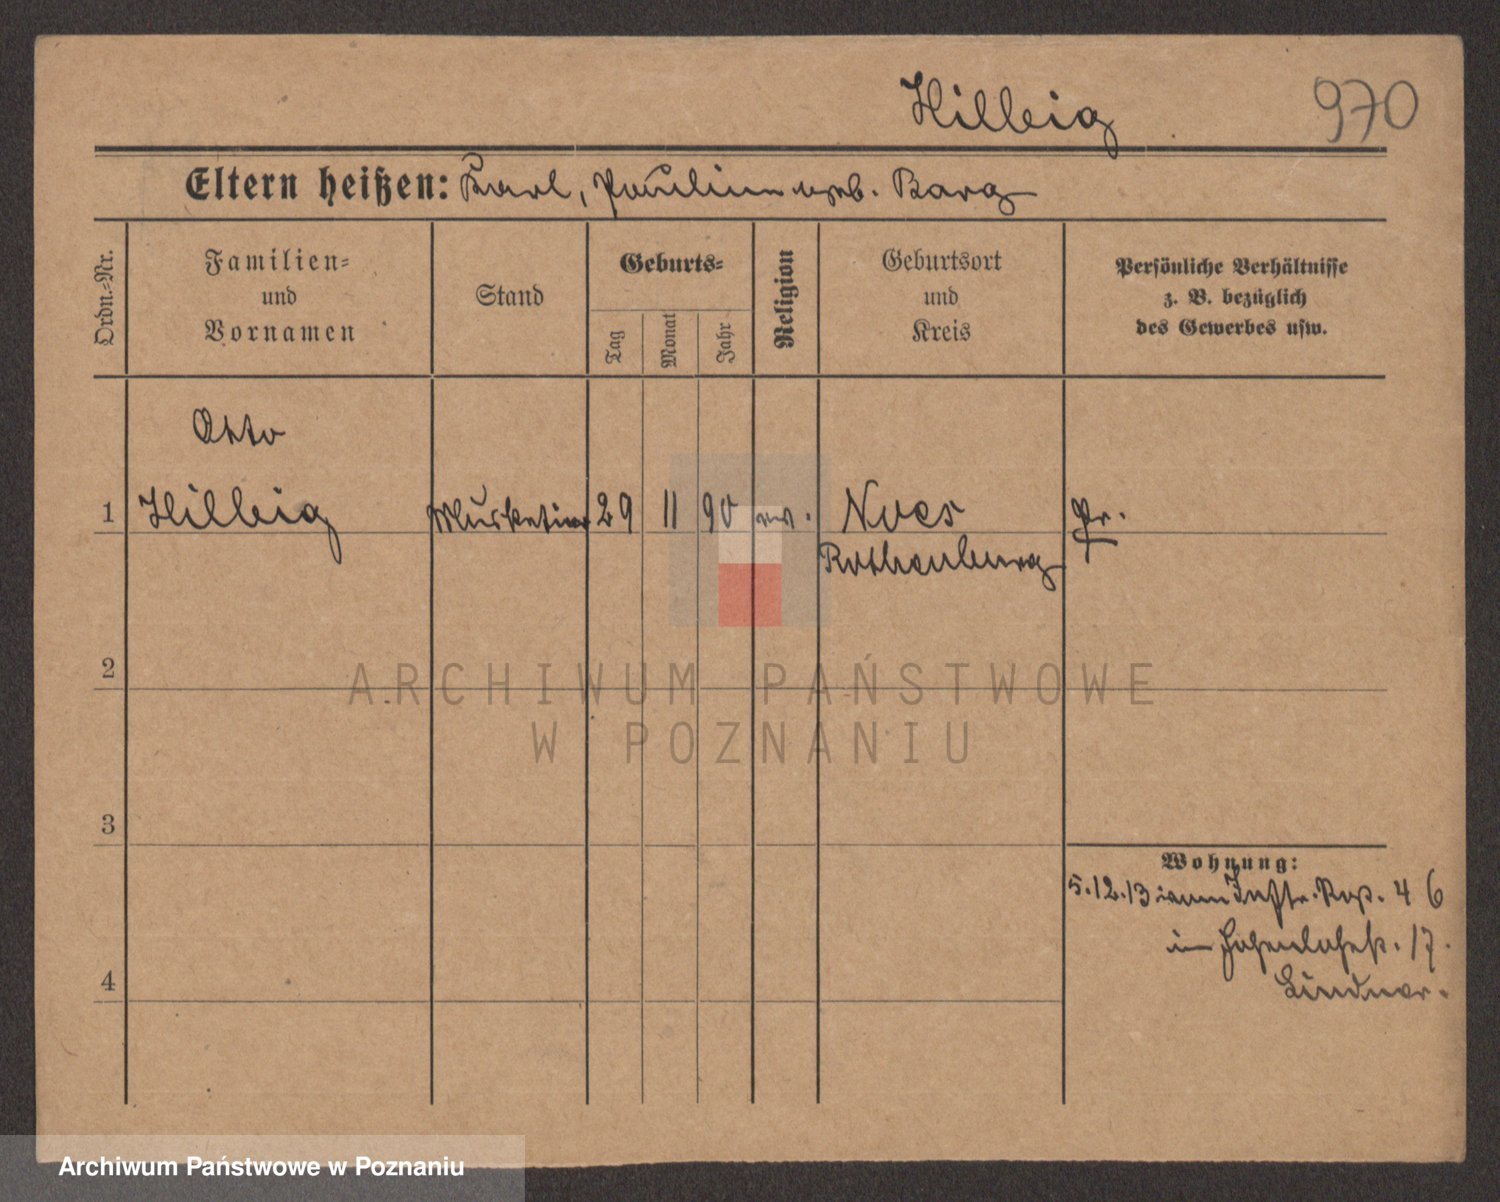 Hilbig 970
Eltern heißen: Karl, Pauline geb. Barg
Ordn.-Nr.
Familien- und Vornamen
Stand
Geburts-
Tag
Monat
Jahr
Religion
Geburtsort und Kreis
Persönliche Verhältnisse
z. B. bezüglich
des Gewerbes usw.
Otto
1 Hilbig Musketier 29 11 90 ev. Noes Pr.
Rothenburg
2
3
4
Wohnung:
5.12.13 vom Inftr. Rgt. 46
in 17.
Lindner.
ARCHIWUM PAŃSTWOWE
W POZNANIU
Archiwum Państwowe w Poznaniu